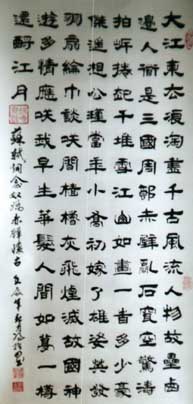 大江東去浪淘盡千古風流人物故壘西
邊人衜是三國周郎赤壁亂石穿空驚濤
拍岸捲起千堆雪江山如畫一時多少豪
傑遙想公瑾當年小喬初嫁了雄姿英發
羽扇綸巾談笑間檣櫓灰飛煙滅故國神
遊多情應笑我早生華髮人間如夢一樽
還酹江月
蘇軾詞念奴嬌赤壁懷古